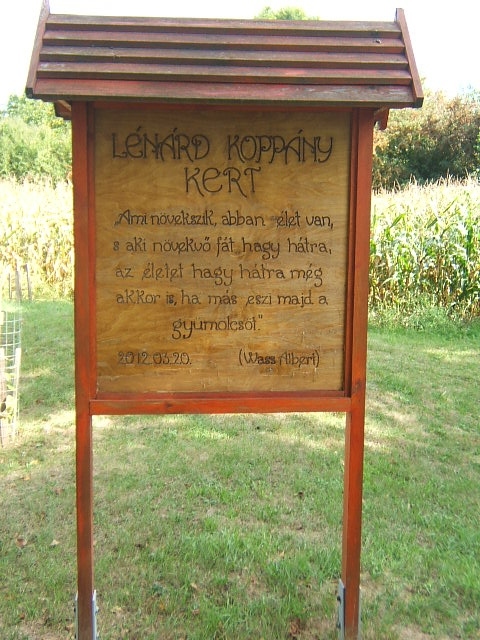 LÉNÁRD KOPPÁNY
KERT
„Ami növekszik, abban élet van,
s aki növekvő fát hagy hátra,
az életet hagy hátra még
akkor is, ha más eszi majd a
gyümölcsöt."
2012.03.20. (Wass Albert)